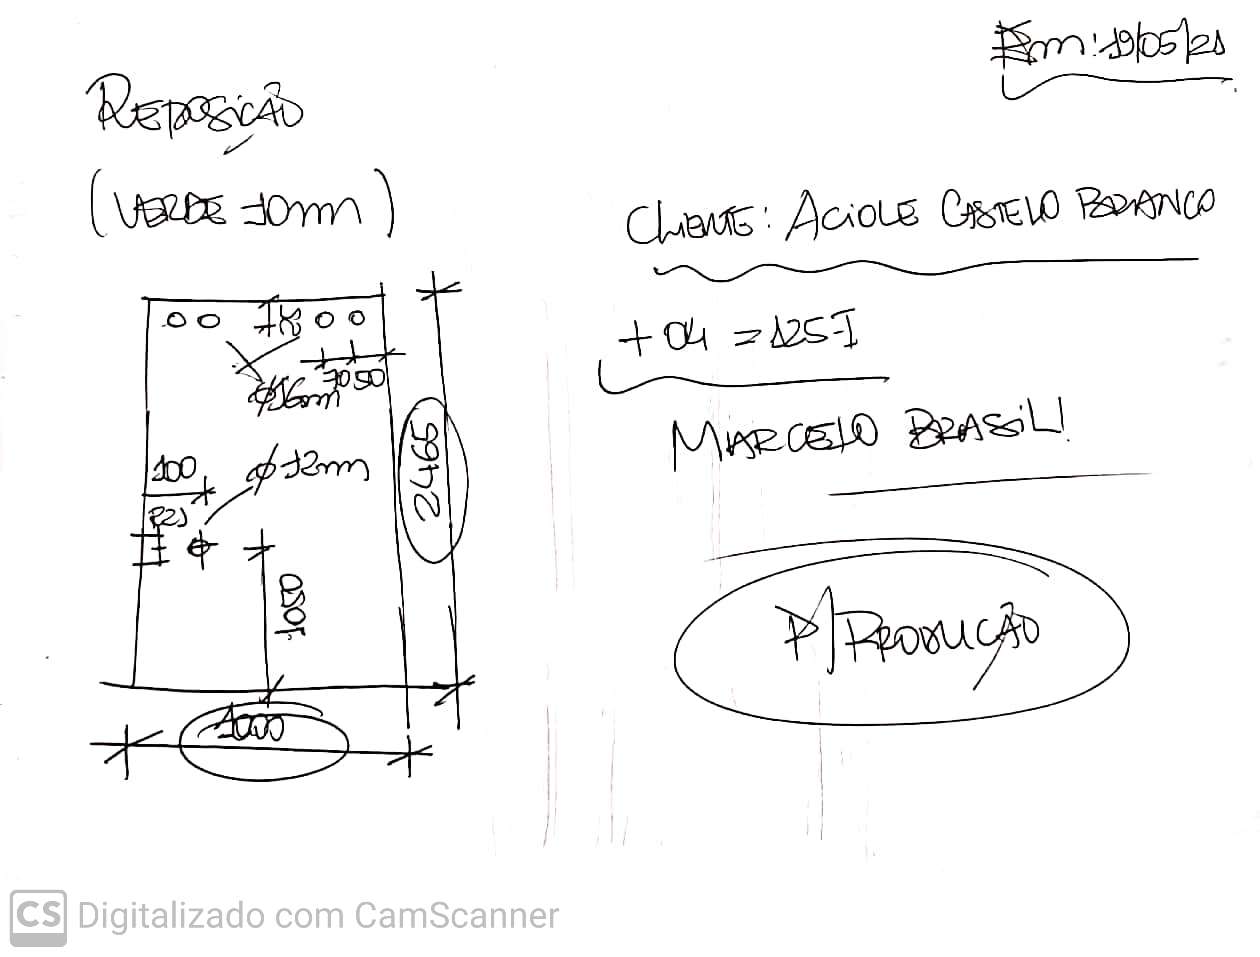 Em: 19/05/21
REPOSIÇÃO
(VERDE 10mm)
CLIENTE: ACIOLE CASTELO BRANCO
+ 04 = 125-I
MARCELO BRASIL!
P/ PRODUÇÃO
70 50
Ø16mm
100
Ø 12mm
2465
1050
1000
CS Digitalizado com CamScanner